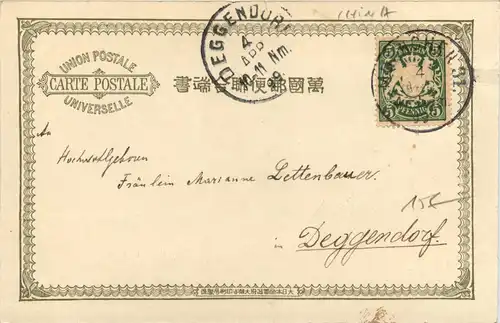 CHINA
DEGGENDORF
4
APR
10-11 Nm.
99
UNION POSTALE
CARTE POSTALE
UNIVERSELLE
書端郵合聯便郵國萬
BAYERN
4
5 PFENNIG 5
An
Hochwohlgeboren
Fräulein Marianne Lettenbauer.
15€
in Deggendorf.